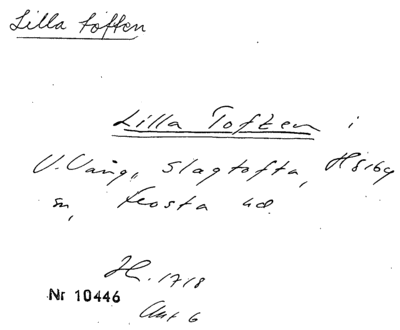 Lilla toften
Lilla Toften i
V. Vång, Slagtofta, Hörby
sn, Frosta hd.
H. 1718
Nr 10446
Akt 6